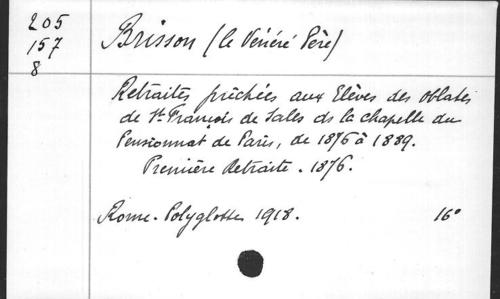 205
157
8
Brisson (le Vénéré Père)
Retraites prêchées aux Elèves des Oblates
de St. François de Sales ds la chapelle du
Pensionnat de Paris, de 1876 à 1889.
Première Retraite. 1876.
Rome. Polyglottes 1918. 16°